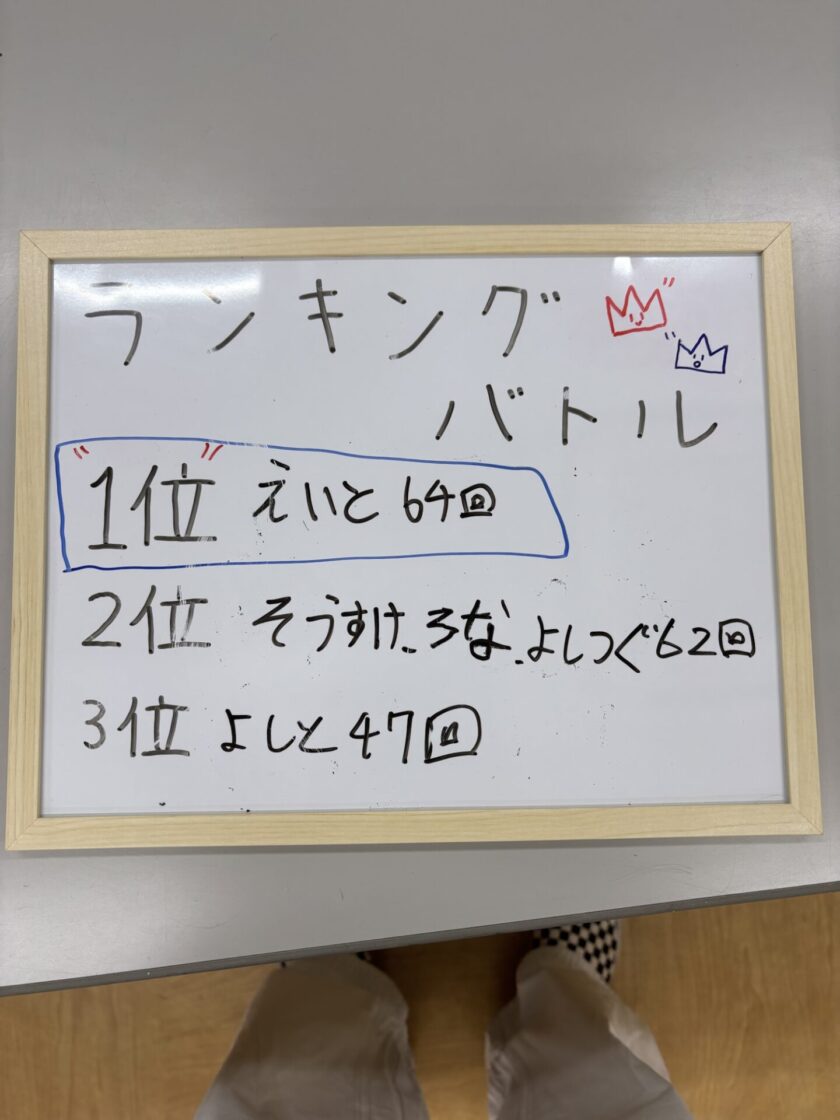 ランキング
バトル
1位 えいと 64回
2位 そうすけ、ろな、よしつぐ 62回
3位 よしと 47回